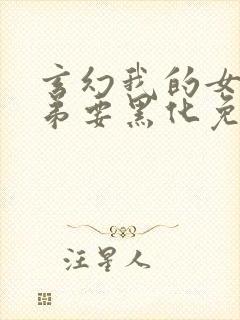 玄幻我的女
弟要黑化免
汪星人